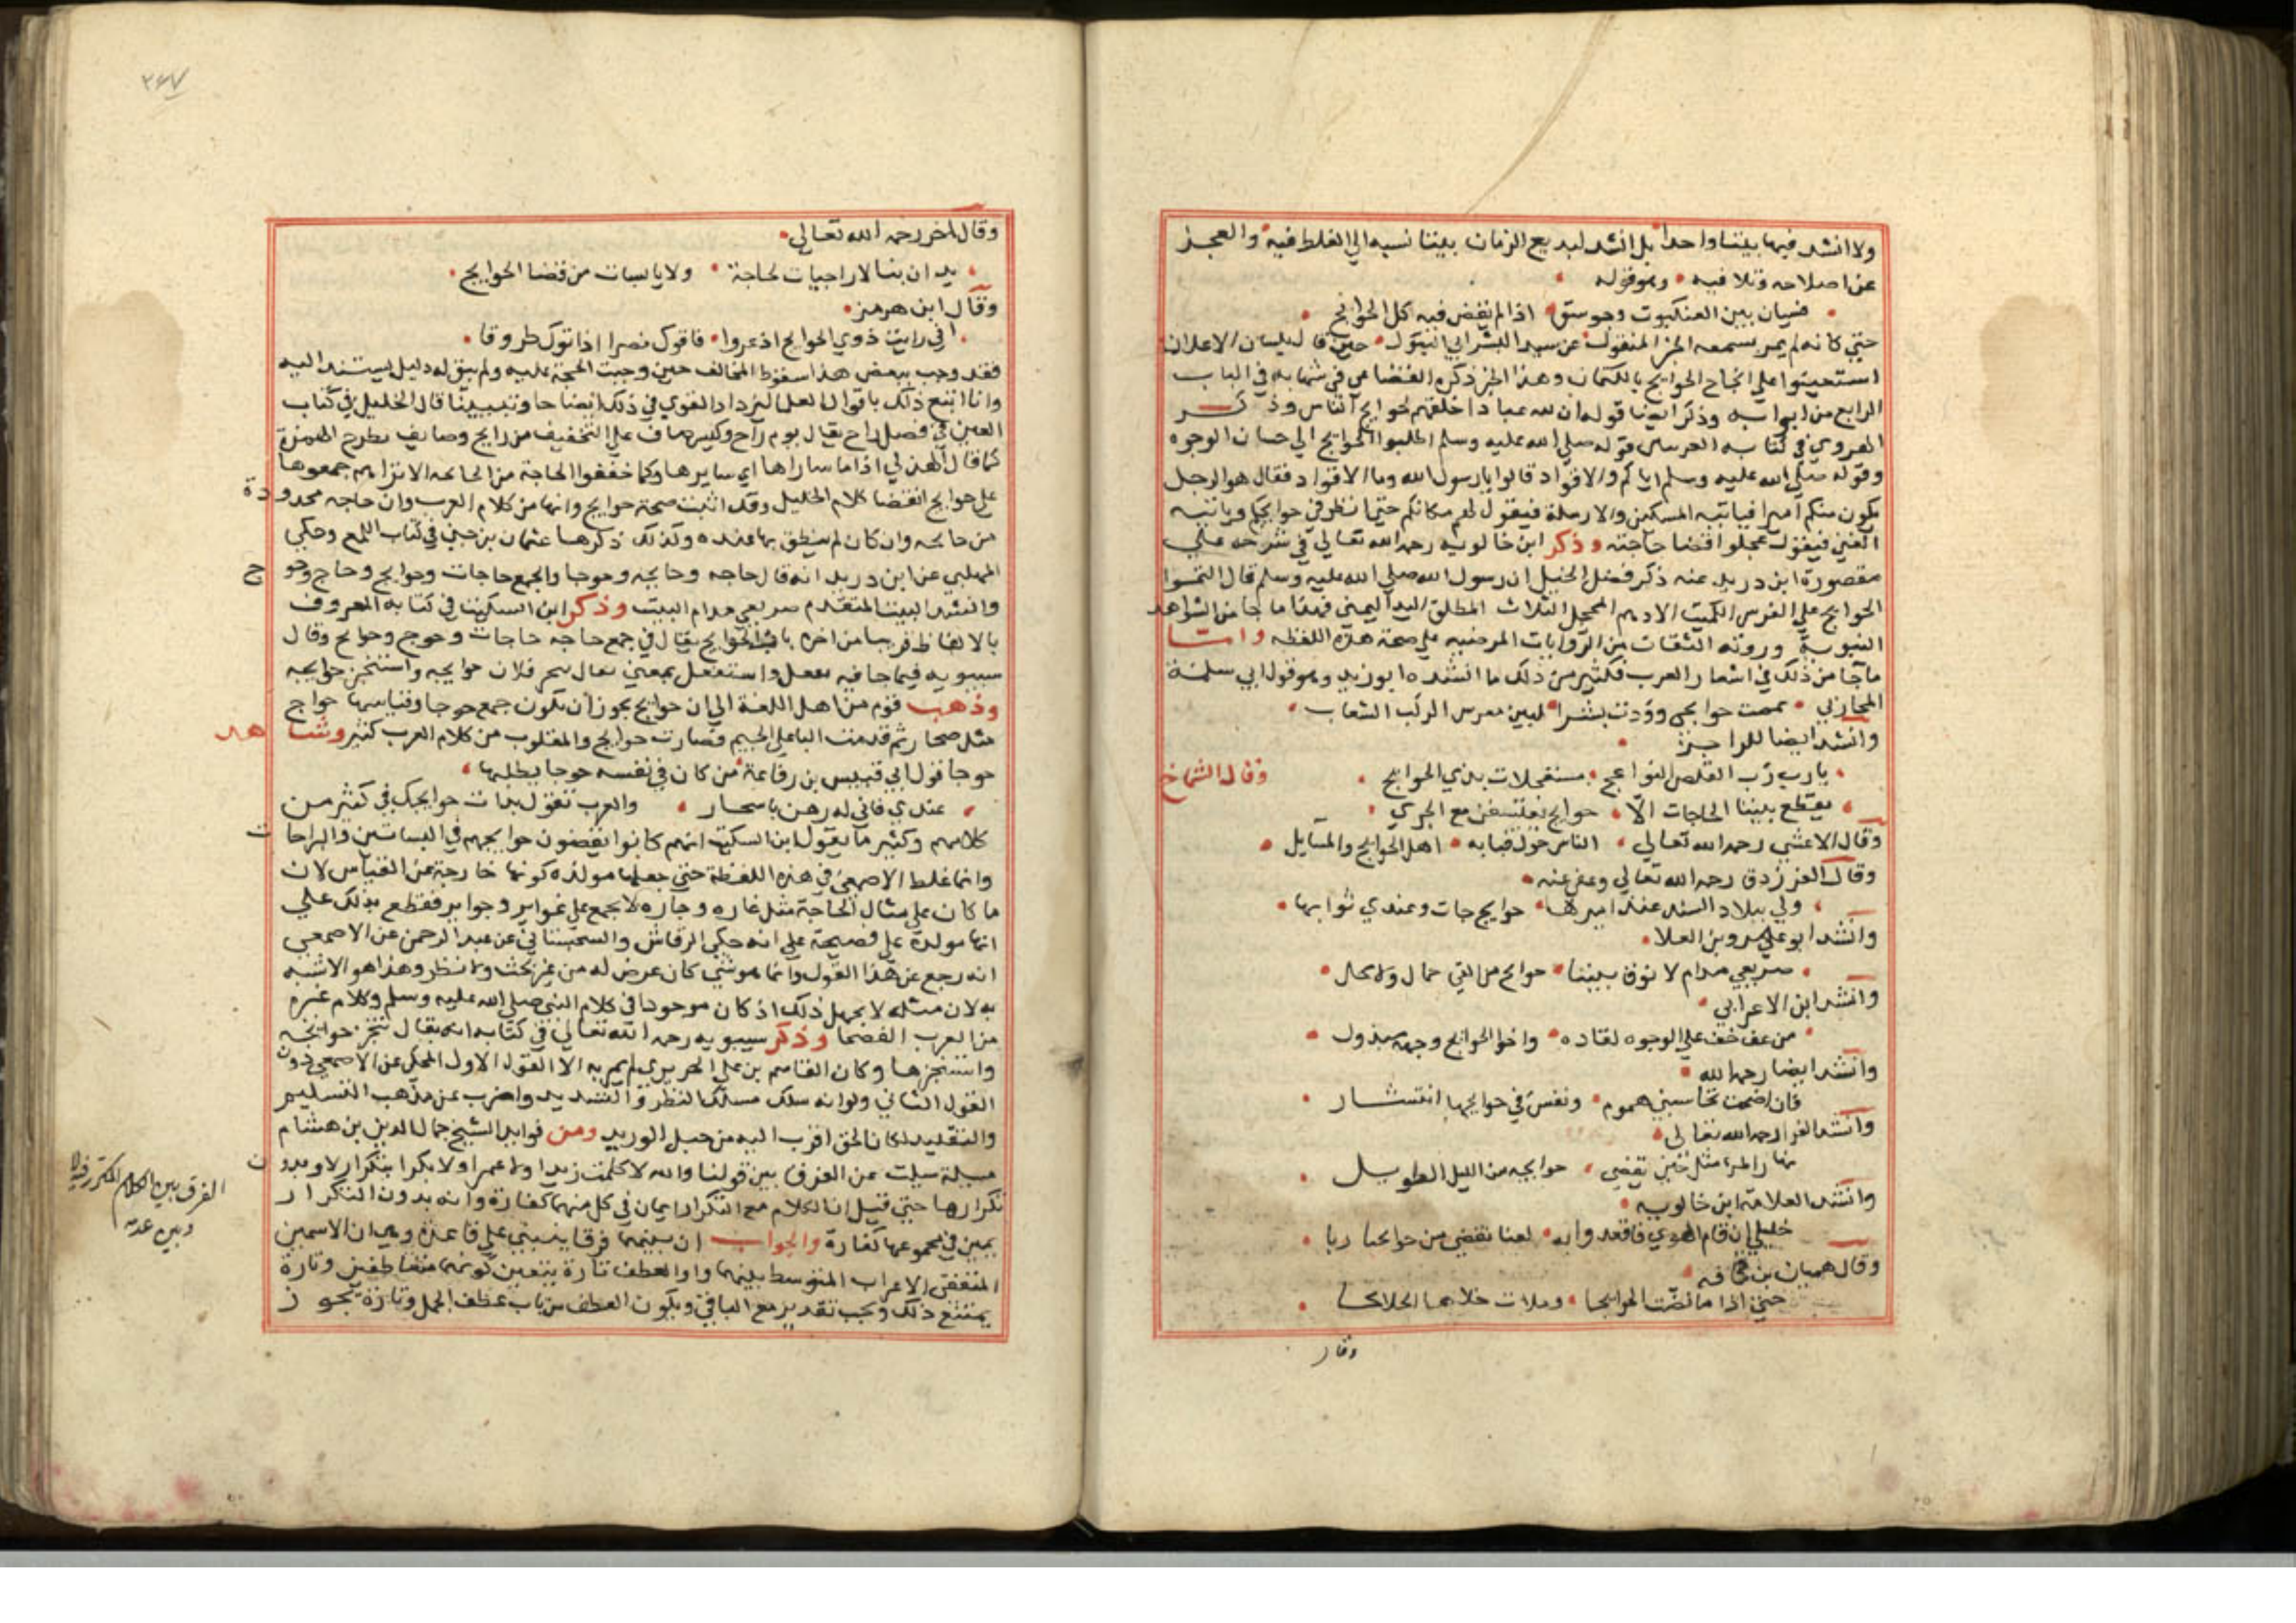 ولا انشد فيها بيتا واحدا بل انشد لبديع الزمان بيتا نسبه الي الغلط فيه والعجز
عن اصلاحه وتلافيه وهو قوله
فسيان بين العنكبوت وجوسق اذا لم تقض فيه كل الحوايج
حتي كانه لم يمر بسمعه الخبر المنقول عن سيد البشر ابي البتول حين قال بلسان الاعلان
استعينوا علي انجاح الحوايج بالكتمان وهذا الخبر ذكره القضاعي في شهابه في الباب
الرابع من ابوابه وذكر ايضا قوله ان لله عبادا خلقهم لحوايج الناس وذكر
الهروي في كتابه الغريبين قوله صلي الله عليه وسلم اطلبوا الحوايج الي حسان الوجوه
وقوله صلي الله عليه وسلم اياكم والاقراد قالوا يا رسول الله وما الاقراد فقال هو الرجل
يكون منكم اميرا فياتيه المسكين والارملة فيقول لهم مكانكم حتي انظر في حوايجكم وياتيه
الغني فيقول عجلوا قضا حاجته وذكر ابن خالويه رحمه الله تعالي في شرحه علي
مقصورة ابن دريد عند ذكر فضل الخيل ان رسول الله صلي الله عليه وسلم قال التمسوا
الحوايج علي الفرس الكميت الادهم المحجل الثلاث المطلق اليد اليمني فهذا ما جا من الشواهد
النبوية وروته الثقات من الروايات المرضيه علي صحة هذه اللفظه وامـا
ما جا من ذلك في اشعار العرب فكثير من ذلك ما انشده ابو زيد وهو قول ابي سلمة
المحاربي ثممت حوايجي ووذت بشرا لبيس معرس الركب السغاب
وانشد ايضا للراجز
يا رب رب القلص النواعج مستعجلات بذي الحوايج وقال الشماخ
يقطع بيننا الحاجات الا حوايج يعتسفن مع الجري
وقال الاعشي رحمه الله تعالي الناس حول قبابه اهل الحوايج والمسايل
وقال الفرزدق رحمه الله تعالي وعفي عنه
ولي ببلاد السند عند اميرها حوايج جات وعندي ثوابها
وانشد ابو عمرو بن العلا
صريعي مدام لا يفرق بيننا حوايج من القي حمال ولا نخل
وانشد ابن الاعرابي
من عف خف علي الوجوه لقاده واخوا الحوايج وجهه مبذول
وانشد ايضا رحمه الله
فان اضحت تخاسبني هموم ونفس في حوايجها انتشار
وانشد الفرا رحمه الله تعالي
نهار المر امثل حين تقضي حوايجه من الليل الطويل
وانشد العلامة ابن خالويه
خليلي ان قام الهوي فاقعد وابه لعنا نقضي من حوايجنا ربا
وقال هميان بن قحافه
حتي اذا ما قضت الحوايجا وملات حلابها الخلانجا
وقال
٢٤٧
وقال اخر رحمه الله تعالي
بدان بنا لا راجيات لحاجة ولا يايسات من قضا الحوايج
وقال ابن هرمز
اني رايت ذوي الحوايج اذ عروا فاتوك نصرا اذ اتوك طروقا
فقد وجب ببعض هذا سقوط المخالف حين وجبت الحجة عليه ولم يبق له دليل يستند اليه
وانا اتبع ذلك باقوال العلما ليزداد القوي في ذلك ايضاحا وتبيينا قال الخليل في كتاب
العين في فصل راح يقال يوم راح وكبش صاف علي التخفيف من رايح وصايف بطرح الهمزة
كما قال الهذلي اذا ما سارها اي سايرها وكما خففوا الحاجة من الحايجه الا تراهم جمعوها
علي حوايج انقضا كلام الخليل وقد اثبت صحة حوايج وانها من كلام العرب وان حاجه محدودة
من حايجه وان كان لم ينطق بها عنده وكذلك ذكرها عثمان بن جني في كتاب اللمع وحكي
المهلبي عن ابن دريد انه قال حاجه وحايجه وحوجا والجمع حاجات وحوايج وحاج وحوج
وانشد البيت المتقدم صريعي مدام البيت وذكر ابن السكيت في كتابه المعروف
بالالفاظ قريبا من اخره باب الحوايج يقال في جمع حاجه حاجات وحوج وحوايج وقال
سيبويه فيما جا فيه تفعل واستفعل بمعني يقال تنجز فلان حوايجه واستنجز حوايجه
وذهب قوم من اهل اللغة الي ان حوايج يجوز ان يكون جمع حوجا وقياسها حواج
مثل صحار ثم قدمت اليا علي الجيم فصارت حوايج والمقلوب من كلام العرب كثير وشاهد
حوجا قول ابي قيس بن رفاعة من كان في نفسه حوجا يطلبها
عندي فاني له رهن باصحار والعرب تقول بدات حوايجك في كثير من
كلامهم وكثير ما يقول ابن السكيت انهم كانوا يقضون حوايجهم في البساتين والراحات
وانما غلط الاصمعي في هذه اللفظة حتي جعلها مولده كونها خارجة عن القياس لان
ما كان علي مثال الحاجة مثل غاره وجاره لا يجمع علي غواير وجواير فقطع بذلك علي
انها مولدة علي فصيحة علي انه حكي الرقاشي والسجستاني عن عبد الرحمن عن الاصمعي
انه رجع عن هذا القول وانما هو شي كان عرض له من غير بحث ولا نظر وهذا هو الاشبه
به لان مثله لا يجهل ذلك اذ كان موجودا في كلام النبي صلي الله عليه وسلم وكلام غيره
من العرب الفصحا وذكر سيبويه رحمه الله تعالي في كتابه انه يقال تنجز حوايجه
واستنجزها وكان القاسم بن علي الحريري لم يمر به الا القول الاول المحكي عن الاصمعي دون
القول الثاني ولو انه سلك مسلك النظر والتشديد واضرب عن مذهب التسليم
والتقليد لكان الحق اقرب اليه من حبل الوريد ومن فوايد الشيخ جمال الدين بن هشام
مسيلة سيلت عن الفرق بين قولنا والله لا كلمت زيدا ولا عمرا ولا بكرا بتكرار لا وبدون
تكرارها حتي قيل ان الكلام مع التكرار ايمان في كل منهما كفارة وانه بدون التكرار
يمين في مجموعها كفارة والجواب ان بينهما فرقا ينبني علي قاعدة وهي ان الاسمين
المتفقي الاعراب المتوسط بينهما واو العطف تارة يتعين كونهما متعاطفين وتارة
يمتنع ذلك ويجب تقدير مع الباقي ويكون العطف من باب عطف الجمل وتارة يجوز
الفرق بين الكلام المكرر فيه لا
وبين عدمه